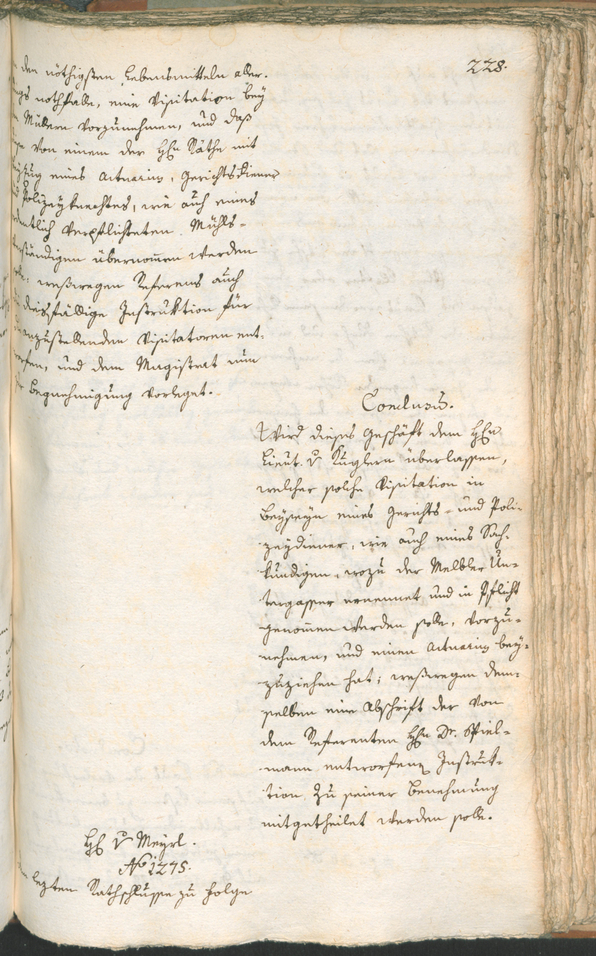 228.
den nöthigsten Lebensmitteln aller-
nothfalls, eine Visitation bey
Müllern vorzunehmen, und daß
von einem der Hℓn Räthe mit
eines Actuarius, Gerichtsdieners
Polizeyknechtes, wie auch eines
verpflichteten Mühl-
übernommen werden
weßwegen Referens auch
diesfällige Instruktion für
anzustellenden Visitatoren ent-
und dem Magistrat nun
Begnehmigung vorleget.
Conclusū.
Wird dieses Geschäft dem Hℓn
Lieut. v Kuglern überlassen,
welcher solche Visitation in
Beyseyn eines Gerichts- und Poli-
zeydiener, wie auch eines Sach-
kundigen, wozu der Melbler Un-
tergasser ernennet und in Pflicht
genommen werden solle, vorzu-
nehmen, und einen Actuarius bey-
zuziehen hat; weßwegen dem-
selben eine Abschrift der von
dem Referenten Hℓn Dr. Spiel-
mann entworfenen Instruk-
tion zu seiner Benehmung
mitgetheilet werden solle.
Hℓ v Meyrl.
No 1275.
lezten Rathschlusse zu Folge